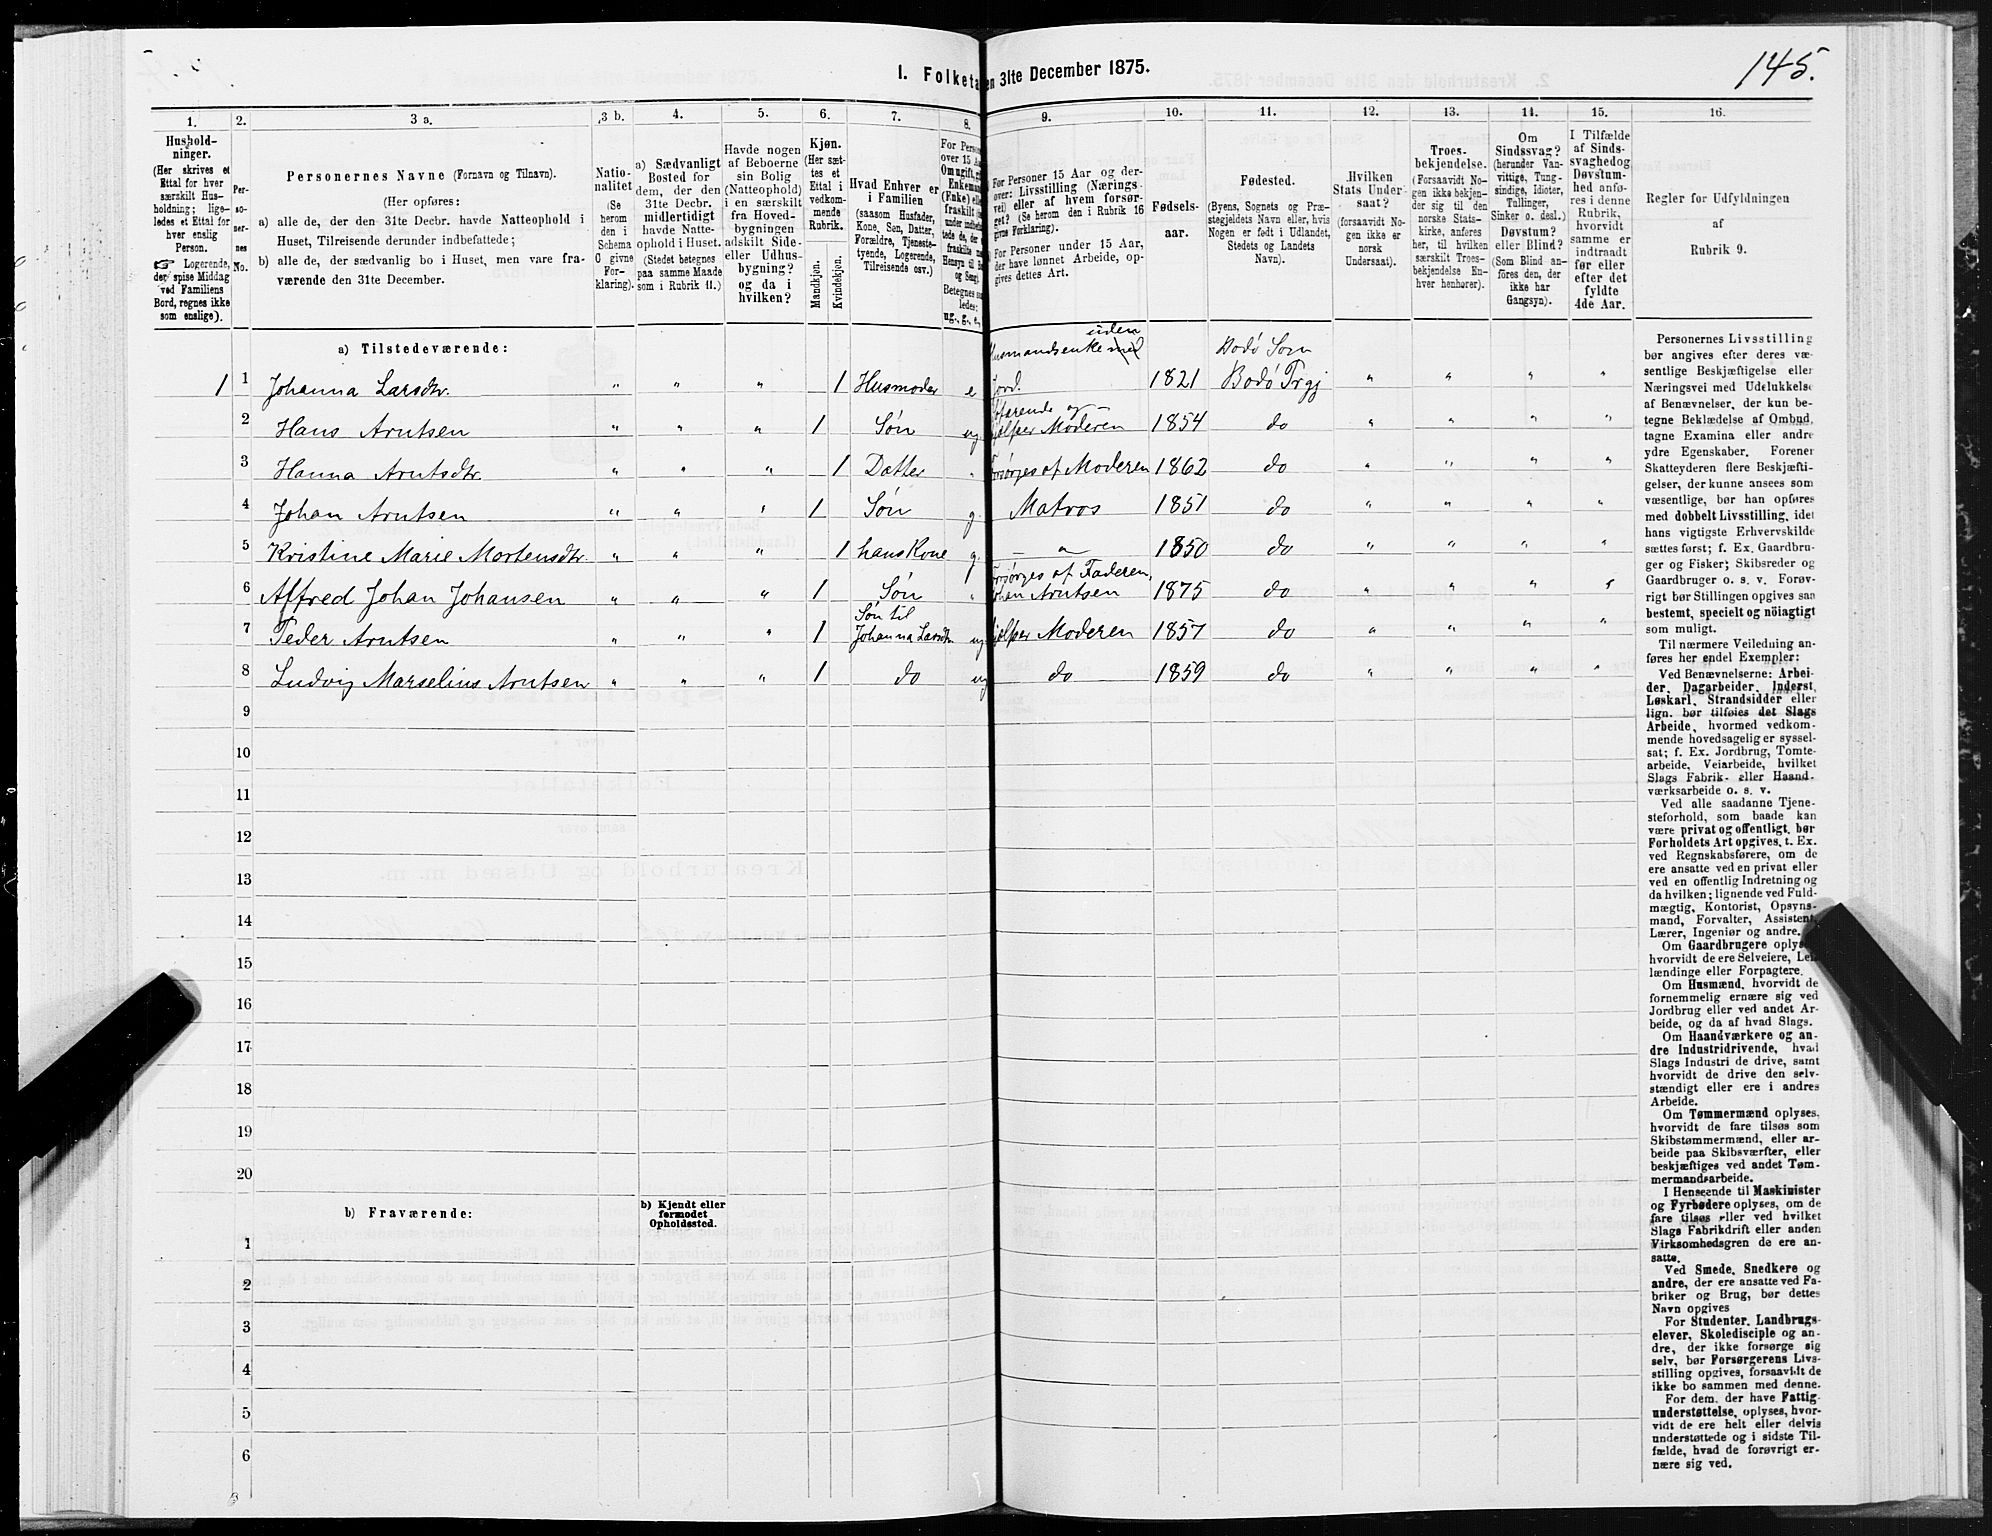 145.
I. Folketa en 31te December 1875.
1. 2. 3 a. 3 b. 4. 5. 6. 7. 8. 9. 10. 11. 12. 13. 14. 15. 16.
Hushold-
ninger.
(Her skrives et
Ettal for hver
særskilt Hus-
holdning; lige-
ledes et Ettal for
hver enslig
Person.
☞ Logerende,
der spise Middag
ved Familiens
Bord, regnes ikke
som enslige).
Per-
so-
ner-
nes
No.
Personernes Navne (Fornavn og Tilnavn).
(Her opføres:
a) alle de, der den 31te Decbr. havde Natteophold i
Huset, Tilreisende derunder indbefattede;
b) alle de, der sædvanlig bo i Huset, men vare fra-
værende den 31te December.
Natio-
nalitet
(Se
herom
den i
Schema
O givne
For-
klaring).
a) Sædvanligt
Bosted for
dem, der den
31te Decbr.
midlertidigt
havde Natte-
ophold i Huset.
(Stedet betegnes
paa samme Maade
som i Rubrik 11.)
Havde nogen
af Beboerne
sin Bolig
(Natteophold)
i en særskilt
fra Hoved-
bygningen
adskilt Side-
eller Udhus-
bygning?
og da i
hvilken?
Kjøn.
(Her sæt-
tes et
Ettal i
vedkom-
mende
Rubrik.
Mandkjøn.
Kvindekjøn.
Hvad Enhver er
i Familien
(saasom Husfader,
Kone, Søn, Datter,
Forældre, Tjeneste-
tyende, Logerende,
Tilreisende osv.)
For Person
over 15 Aa
Om ugift, gi
Enkema
(Enke) elle
fraskilt
Betegnes sa
ledes:
ug., g., e.,
For Personer 15 Aar og der-
over: Livsstilling (Nærings-
vei) eller af hvem forsør-
get? (Se herom den i Rubrik 16
givne Forklaring).
For Personer under 15 Aar,
der have lønnet Arbeide, op-
gives dettes Art.
Fødsels-
aar.
Fødested.
(Byens, Sognets og Præ-
stegjeldets Navn eller, hvis
Nogen er født i Udlandet,
Stedets og Landets
Navn).
Hvilken
Stats Under-
saat?
(forsaavidt No-
gen ikke er
norsk
Undersaat).
Troes-
bekjendelse.
(Forsaavidt No-
gen ikke bekjen-
der sig til den
norske Stats-
kirke, anføres
her, til hvilken
særskilt Troes-
bekjendelse En-
hver henhører).
Om
Sindssvag?
(herunder Van-
vittige, Tung-
sindige, Idioter,
Tullinger,
Sinker o. desl.)
Døvstum?
eller Blind?
(Som Blind an-
føres den, der
ikke har
Gangsyn).
I Tilfælde
af Sinds-
svaghed og
Døvstum-
hed anfø-
res i denne
Rubrik,
hvorvidt
samme er
indtraadt
før eller
efter det
fyldte
4de Aar.
Regler for Udfyldningen
af
Rubrik 9.
a) Tilstedeværende:
1 1 Johanna Larsdtr. " " " 1 Husmoder e Husmandsenke med uden Jord. 1821 Bodø Som Bodø Prgj " " " "
2 Hans Arntsen " " " 1 Søn ug farende og hjelper Moderen 1854 do " " " "
3 Hanna Arntsdtr. " " " 1 Datter " Forsørges af Moderen 1862 do " " " "
4 Johan Arntsen " " " 1 Søn g Matros 1851 do " " " "
5 Kristine Marie Mortensdtr. " " " 1 hans Kone g — " — 1850 do " " " "
6 Alfred Johan Johansen " " " 1 Søn " Forsørges af Faderen, Johan Arntsen 1875 do " " " "
7 Peder Arntsen " " " 1 Søn til Johanna Larsdtr ug hjelper Moderen 1857 do " " " "
8 Ludvig Marselius Arntsen " " " 1 do ug do 1859 do " " " "
9
10
11
12
13
14
15
16
17
18
19
20
b) Fraværende:
b) Kjendt eller
formodet
Opholdssted.
1
2
3
4
5
6
Personernes Livsstilling
bør angives efter deres væ-
sentlige Beskjæftigelse eller
Næringsvei med Udelukkelse
af Benævnelser, der kun be-
tegne Beklædelse af Ombud,
tagne Examina eller andre
ydre Egenskaber. Forener
Skatteyderen flere Beskjæfti-
gelser, der kunne ansees som
væsentlige, bør han opføres
med dobbelt Livsstilling, idet
hans vigtigste Erhvervskilde
sættes først; f. Ex. Gaardbru-
ger og Fisker; Skibsreder og
Gaardbruger o. s. v. Forøv-
rigt bør Stillingen opgives saa
bestemt, specielt og nöiagtigt
som muligt.
Til nærmere Veiledning an-
føres her endel Exempler:
Ved Benævnelserne: Arbei-
der, Dagarbeider, Inderst,
Løskarl, Strandsidder eller
lign. bør tilføies det Slags
Arbeide, hvormed vedkom-
mende hovedsagelig er syssel-
sat; f. Ex. Jordbrug, Tomte-
arbeide, Veiarbeide, hvilket
Slags Fabrik- eller Haand-
værksarbeide o. s. v.
Ved alle saadanne Tjene-
steforhold, som baade kan
være privat og offentligt, bør
Forholdets Art opgives, t. Ex.
ved Regnskabsførere, om de
ere ansatte ved en privat eller
ved en offentlig Indretning og
da hvilken; lignende ved Fuld-
mægtig, Kontorist, Opsyns-
mand, Forvalter, Assistent,
Lærer, Ingeniør og andre.
Om Gaardbrugere oplys
hvorvidt de ere Selveiere, Lei
lændinge eller Forpagtere.
Om Husmænd, hvorvidt de
fornemmelig ernære sig ved
Jordbrug eller ved andet Ar-
beide, og da af hvad Slags.
Om Haandværkere og an-
dre Industridrivende, hvad
Slags Industri de drive, samt
hvorvidt de drive den selv-
stændigt eller ere i andres
Arbeide.
Om Tømmermænd oplyses,
hvorvidt de fare tilsøs som
Skibstømmermænd, eller ar-
beide paa Skibsværfter, eller
beskjæftiges ved andet Tøm-
mermandsarbeide.
I Henseende til Maskinister
og Fyrbødere oplyses, om de
fare tilsøs eller ved hvilket
Slags Fabrikdrift eller anden
Virksomhedsgren de ere an-
satte.
Ved Smede, Snedkere og
andre, der ere ansatte ved Fa-
briker og Brug, bør dettes
Navn opgives
For Studenter, Landbrugs-
elever, Skoledisciple og an-
dre, der ikke forsørge sig
selv, bør Forsørgerens Livs-
stilling opgives, forsaavidt de
ikke bo sammen med denne.
For dem, der have Fattig-
understøttelse, oplyses, hvor-
vidt de ere helt eller delvis
understøttede og i sidste Til-
fælde, hvad de forøvrigt er-
nære sig ved.